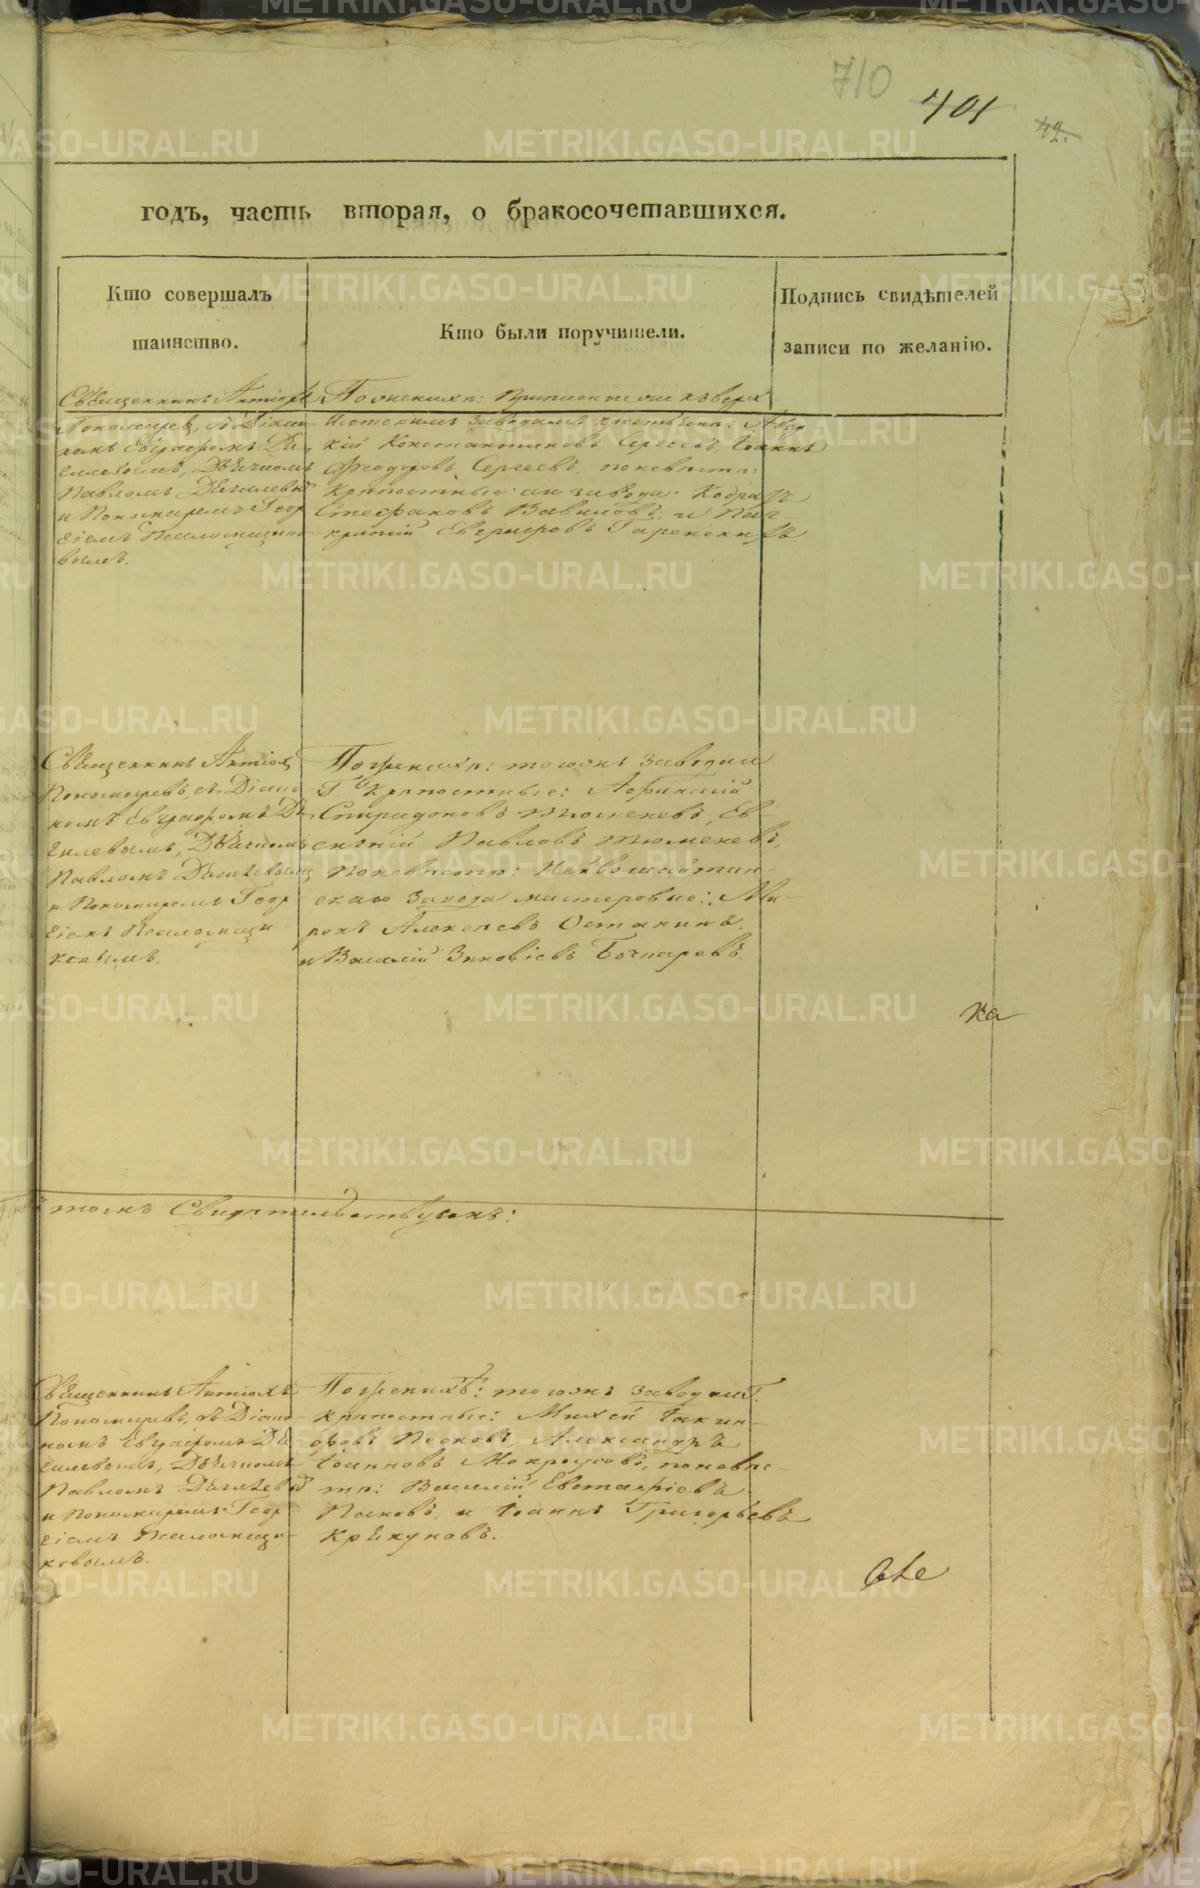 710
401
42.
годъ, часть вторая, о бракосочетавшихся.
Кто совершалъ
таинство.
Кто были поручители.
Подпись свидѣтелей
записи по желанію.
Священникъ Антіохъ
Пономаревъ, съ Діако
номъ Евграфомъ Де
гилевымъ, Дьячкомъ
Павломъ Дягилевы
и Пономаремъ Геор
гіемъ Псаломщико
вымъ.
По женихѣ: Приписные къ Верхъ
Исетскимъ заводамъ крестьяне:
кій Константиновъ Сергеевъ, Іоаннъ
Феодоровъ Сергеевъ, по невѣстѣ:
Крѣпостные завода:
Стефановъ Вавиловъ, и Пан-
кратій Евграфовъ
Священникъ Антіохъ
Пономаревъ, съ Діако
номъ Евграфомъ Дя
гилевымъ, Дьячкомъ
Павломъ Дягилевымъ
и Пономаремъ Геор
гіемъ Псаломщи
ковымъ.
По женихѣ: тогожъ завода
Г. Крѣпостные:
Спиридоновъ Тюменевъ, Ев
геній Павловъ Тюменевъ,
По невѣстѣ: Нейвошайтан-
скаго Завода мастеровые: Ми-
ронъ Алексѣевъ Останинъ,
и Василій Зиновіевъ Бочкаревъ.
ка
томъ Свидѣтельствуемъ:
Священникъ Антіохъ
Пономаревъ, съ Діако
номъ Евграфомъ Дя
гилевымъ, Дьячкомъ
Павломъ Дягилевы
и Пономаремъ Геор
гіемъ Псаломщи
ковымъ.
По женихѣ: тогожъ завода Г.
крѣпостные: Михей Іакин-
ѳовъ Песковъ, Александръ
Іоанновъ Мокроусовъ, по невѣс-
тѣ: Василій Евстафіевъ
Песковъ, и Іоаннъ Григорьевъ
Крекуновъ.
METRIKI.GASO-URAL.RU